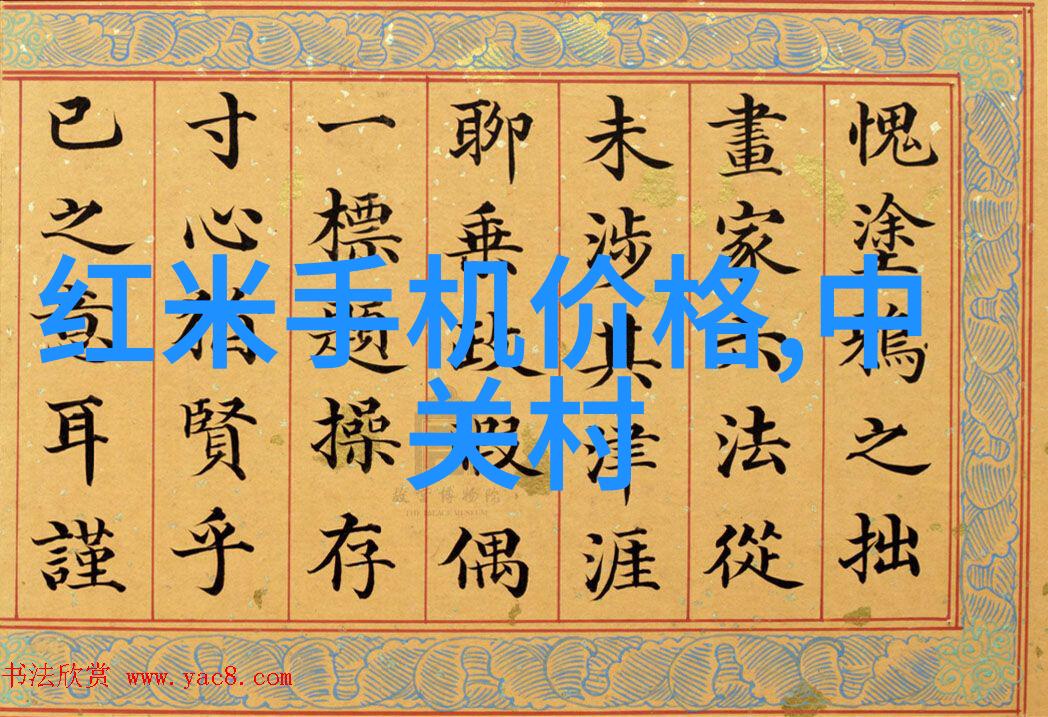 愧塗鴉之拙
畫家六法從
未涉其津涯
聊垂政暇偶
一標題操存
寸心猶賢乎
已之意耳謹
红米手机价格,中
关村
故宫博物院
THE PALACE MUSEUM
书法欣赏 www.yac8.com